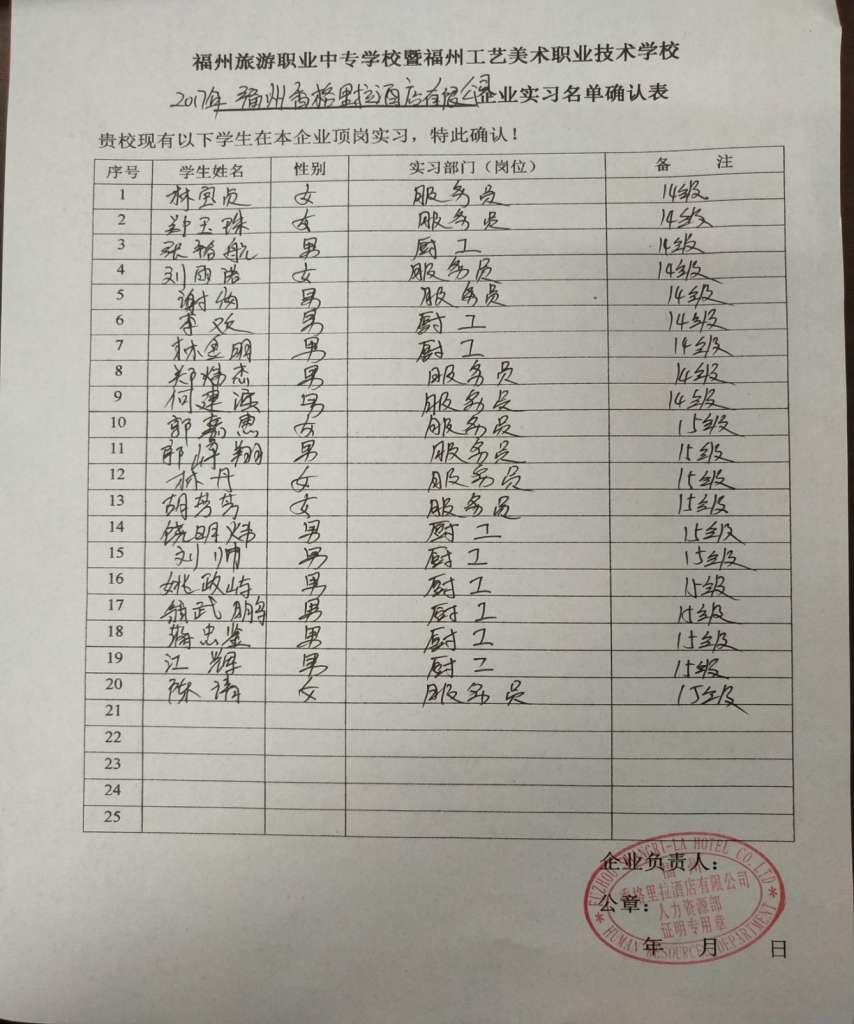 福州旅游职业中专学校暨福州工艺美术职业技术学校
2017年 福州香格里拉酒店有限公司企业实习名单确认表
贵校现有以下学生在本企业顶岗实习，特此确认！
序号 学生姓名 性别 实习部门（岗位） 备 注
1 林宝贞 女 服务员 14级
2 郑玉珠 女 服务员 14级
3 张裕航 男 厨工 14级
4 刘雨洁 女 服务员 14级
5 谢 男 服务员 14级
6 李欢 男 厨工 14级
7 林金明 男 厨工 14级
8 郑炜杰 男 服务员 14级
9 何建滨 男 服务员 14级
10 郭嘉惠 女 服务员 15级
11 郭焯翔 男 服务员 15级
12 林丹 女 服务员 15级
13 胡芳芳 女 服务员 15级
14 饶明炜 男 厨工 15级
15 刘帅 男 厨工 15级
16 姚政屿 男 厨工 15级
17 武鹏 男 厨工 15级
18 忠鉴 男 厨工 15级
19 江辉 男 厨工 15级
20 陈靖 女 服务员 15级
21
22
23
24
25
企业负责人：
公章：
年 月 日
FUZHOU SHANGRI-LA HOTEL CO.LTD
福州
香格里拉酒店有限公司
人力资源部
证明专用章
HUMAN RESOURCES DEPARTMENT